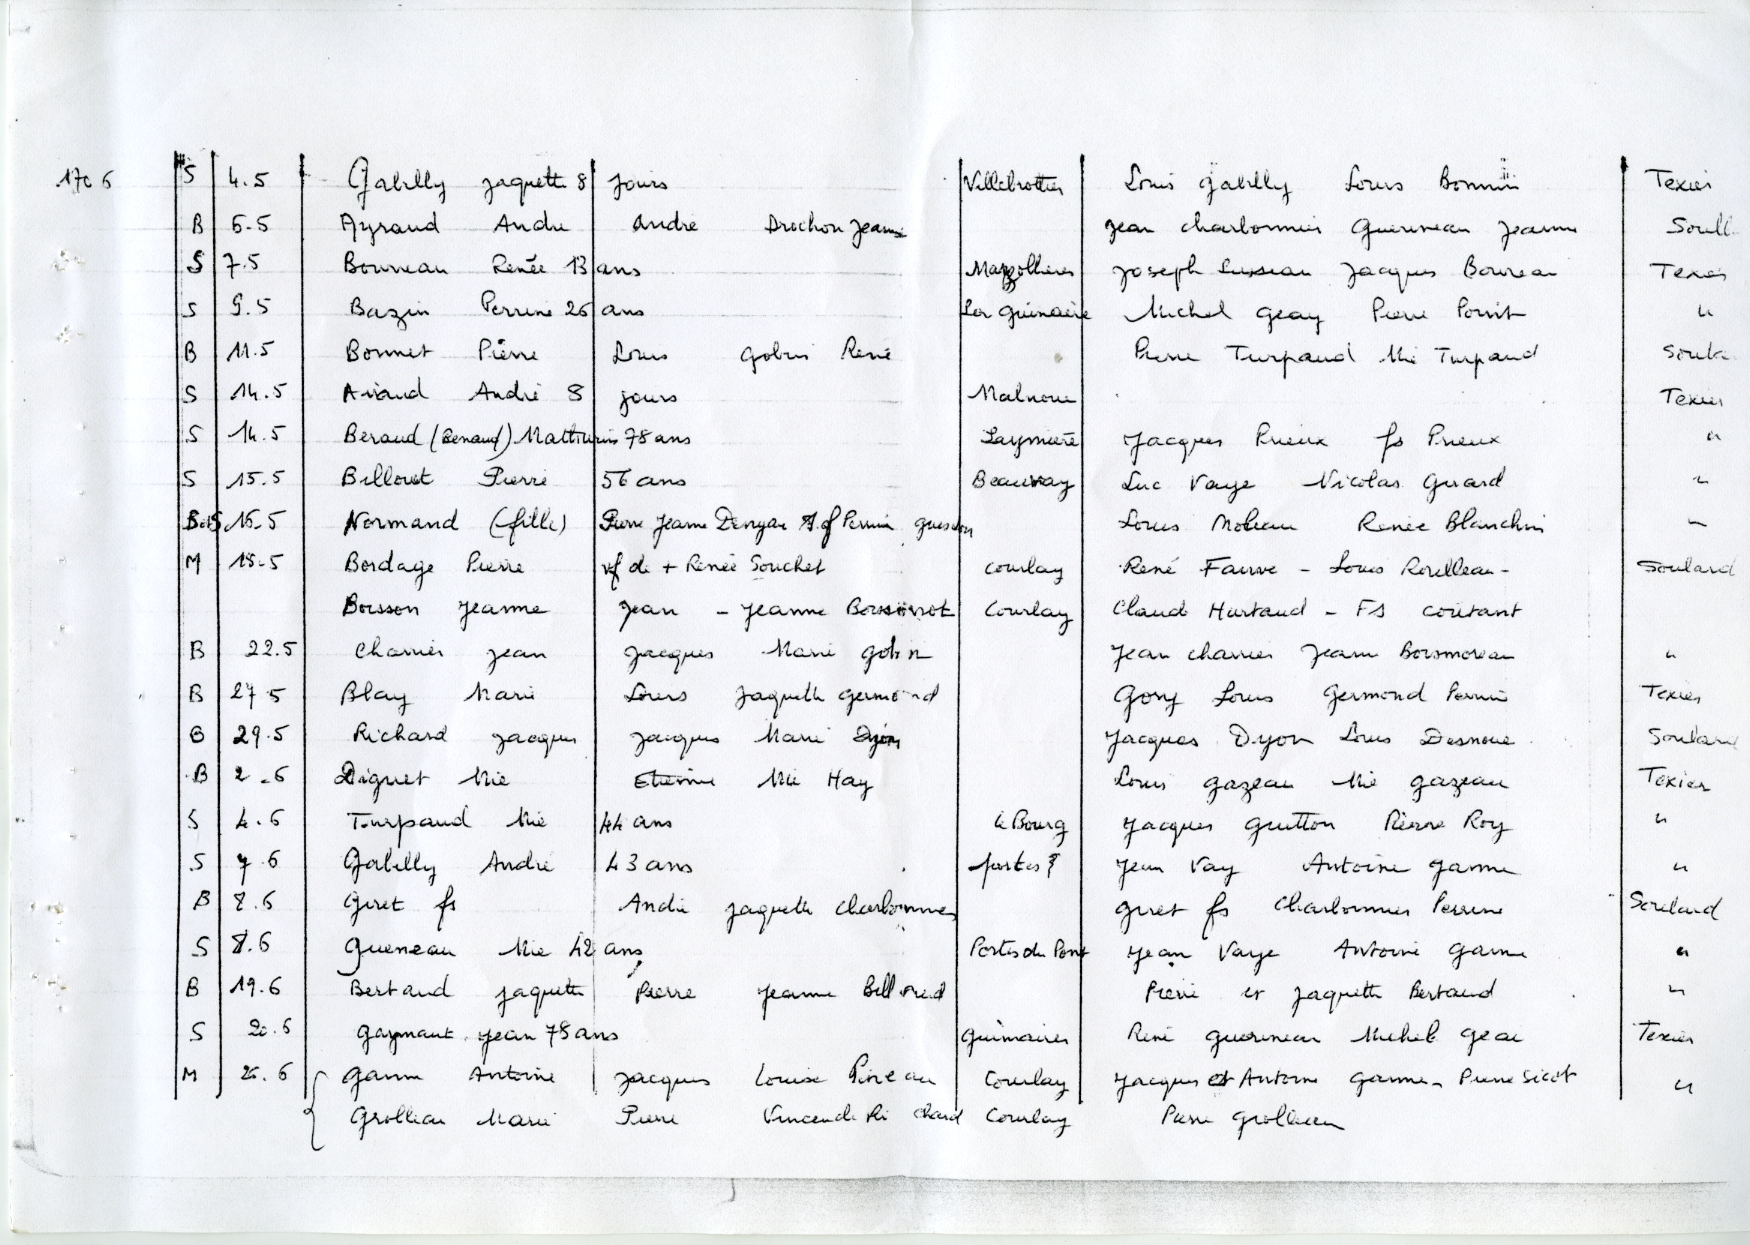 1706 S 4.5 Gabilly Jaquette 8 jours Villebrottier Louis Gabilly Louis Bonnin Texier
B 6.5 Ayraud André André Drochon Jeanne Jean Charbonnier Guerineau Jeanne Soull
S 7.5 Bouneau Renée 13 ans Mazollieres Joseph Jacques Boureau Texier
S 9.5 Bazin Perrine 26 ans Michel Geay Pierre "
B 11.5 Bonnet Pierre Louis Gobin René Pierre Turpaud Mie Turpaud Soula
S 14.5 Airaud André 8 jours Malnoue Texier
S 14.5 Beraud (Renaud) Mathurin 78 ans Jacques Prieux fs Prieux "
S 15.5 Billouet Pierre 56 ans Beauvay Luc Vaye Nicolas Girard "
16.5 Normand (fille) Pierre Jeanne Louis Renée Blanchin "
M 18.5 Bordage Pierre vf de + Renée Souchet Courlay René Fauve - Louis Roulleau - Soulard
Boisson Jeanne Jean - Jeanne Courlay Claud Hurtaud - Fs coutant
B 22.5 Charrier Jean Jacques Marie Gobin Jean Charrier Jeanne Boismoreau "
B 27.5 Blay Marie Louis Jaquette Germond Gory Louis Germond Perrine Texier
B 29.5 Richard Jacques Jacques Marie Dyon Jacques Dyon Louis Desnoue Soulard
B 2.6 Diguet Mie Etienne Mie Hay Louis Gazeau Mie Gazeau Texier
S 4.6 Tourpaud Mie 44 ans le Bourg Jacques Guitton Pierre Roy "
S 7.6 Gabilly André 43 ans portes? Jean Vay Antoine Ganne "
B 8.6 Giret fs André Jaquette Charbonnier Giret fs Charbonnier Perrine Soulard
S 8.6 Gueneau Mie 42 ans Portes du Pont Jean Vaye Antoine Ganne "
B 19.6 Bertaud Jaquette Pierre Jeanne Billoued Pierre et Jaquette Bertaud "
S 20.6 Jean 78 ans Guimaires René Guerineau Michel Geai Texier
M 26.6 Ganne Antoine Jacques Louise Pineau Courlay Jacques et Antoine Ganne - Pierre Sicot "
Grolleau Marie Pierre Vincende Richard Courlay Pierre Grolleau